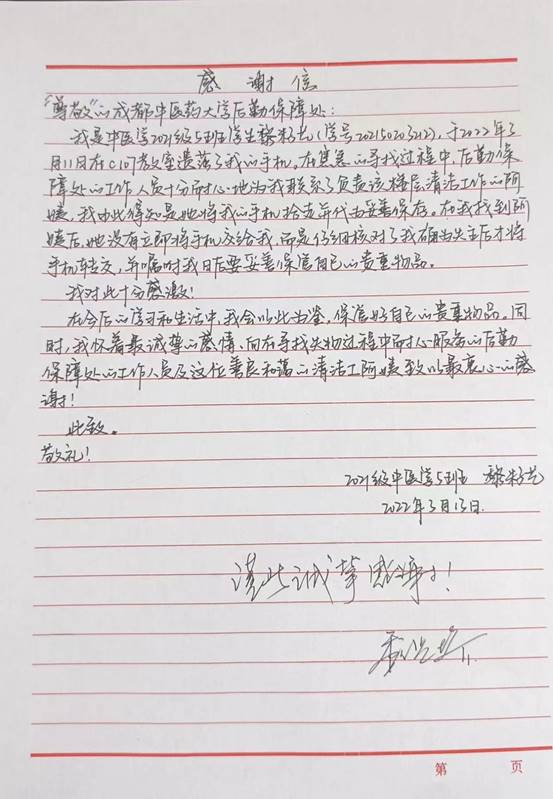 感谢信
"尊敬"的成都中医药大学后勤保障处：
我是中医学2021级5班学生黎籽艺(学号202150203212)，于2022年3
月11日在C107教室遗落了我的手机，在焦急的寻找过程中，后勤保
障处的工作人员十分耐心地为我联系了负责该楼层清洁工作的阿
姨，我由此得知是她将我的手机拾走并代为妥善保存。在我找到阿
姨后，她没有立即将手机交给我，而是仔细核对了我确由失主后才将
手机转交，并嘱咐我日后要妥善保管自己的贵重物品。
我对此十分感激！
在今后的学习和生活中，我会以此为鉴，保管好自己的贵重物品。同
时，我怀着最诚挚的感情，向在寻找失物过程中耐心服务的后勤
保障处的工作人员及这位善良和蔼的清洁工阿姨致以最衷心的感
谢！
此致。
敬礼！
2021级中医学5班
2022年3月13日.
谨此诚挚感谢！
第 页